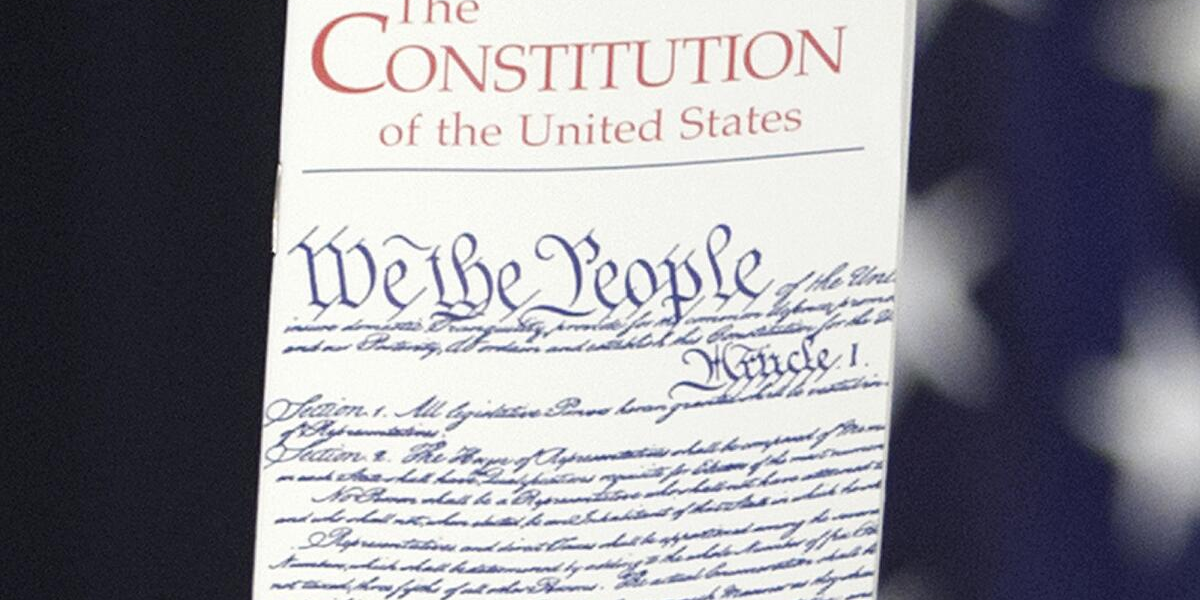 The
CONSTITUTION
of the United States
We the People of the Uni
insure domestic Tranquility, provide for the common defence, promo
and our Posterity, do ordain and establish this Constitution for the U
Article I.
Section 1. All legislative Powers herein granted shall be vested in
of Representatives.
Section 2. The House of Representatives shall be composed of Mem
in each State shall have Qualifications requisite for Electors of the most numerous
No Person shall be a Representative who shall not have attained t
and who shall not, when elected, be an Inhabitant of that State in which he shall
Representatives and direct Taxes shall be apportioned among the several
Numbers, which shall be determined by adding to the whole Number of free
not taxed, three fifths of all other Persons. The actual Enumeration shall be